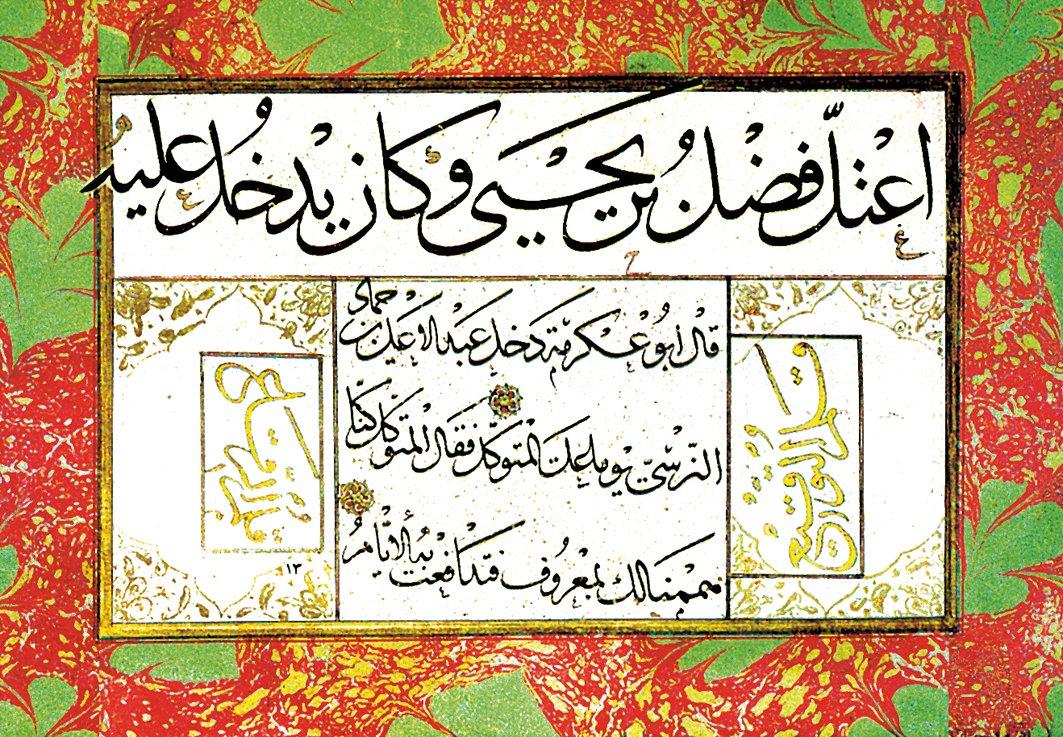 اعْتلّ فضْل بنُ يحْيَى وكان يدْخلُ عليه
قال ابو عكرمة دخل عبد الاعلى بن حماد
النّرْسيّ يوما على المتوكّل فقال المتوكّل كنّا
هممنا لك بمعْرُوف فتدافعت به الأيّامُ
قلم التوقيع
قلم الرقاع
١٣